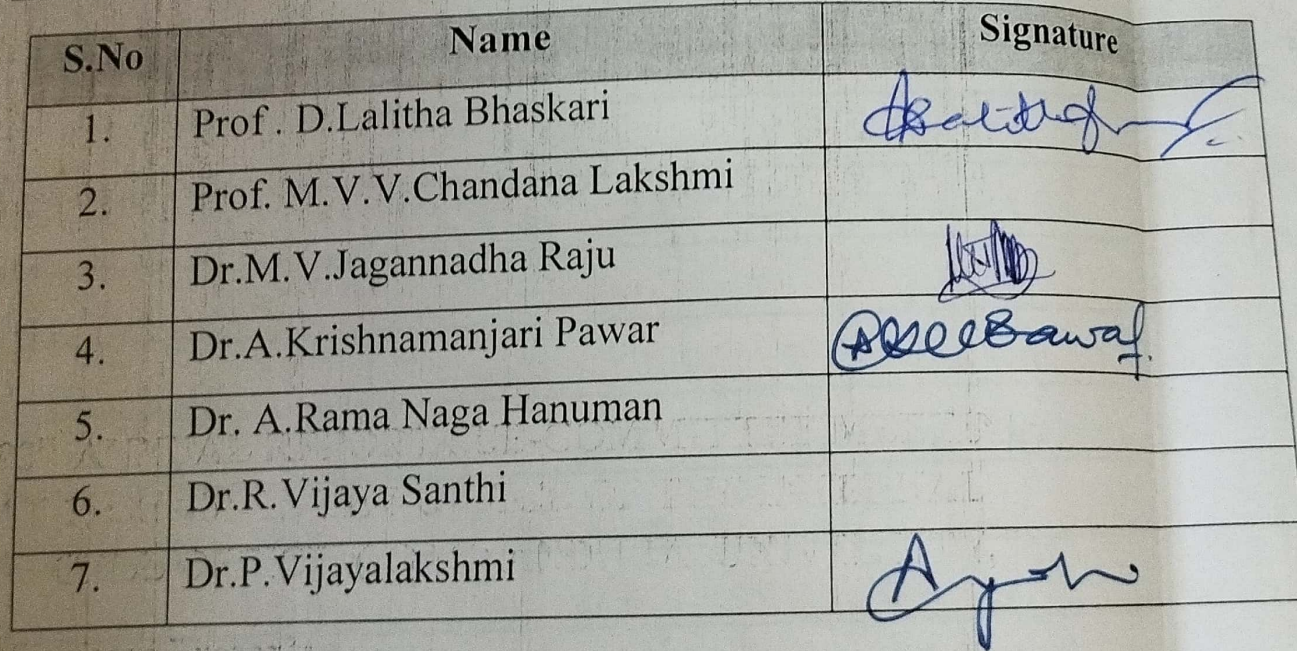 S.No Name Signature
1. Prof. D.Lalitha Bhaskari
2. Prof. M.V.V.Chandana Lakshmi
3. Dr.M.V.Jagannadha Raju
4. Dr.A.Krishnamanjari Pawar
5. Dr. A.Rama Naga Hanuman
6. Dr.R.Vijaya Santhi
7. Dr.P.Vijayalakshmi